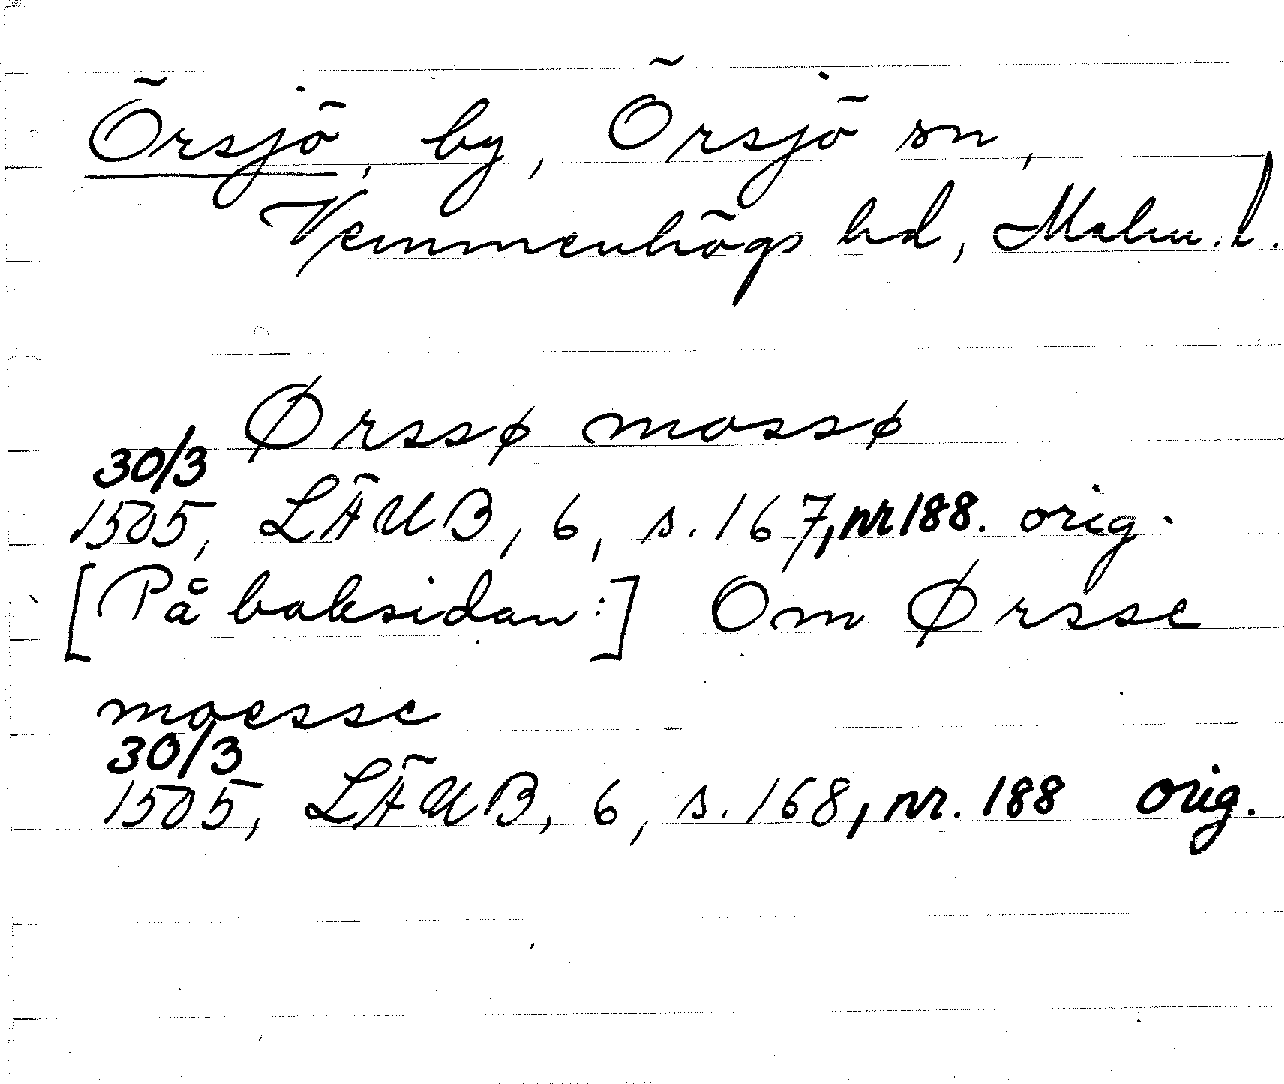 Örsjö, by, Örsjö sn,
Vemmenhögs hd, Malm. l.
Ørssø mossø
30/3
1505, LÄUB, 6, s. 167, nr 188. orig.
[På baksidan:] Om Ørsse
moesse
30/3
1505, LÄUB, 6, s. 168, nr. 188 orig.